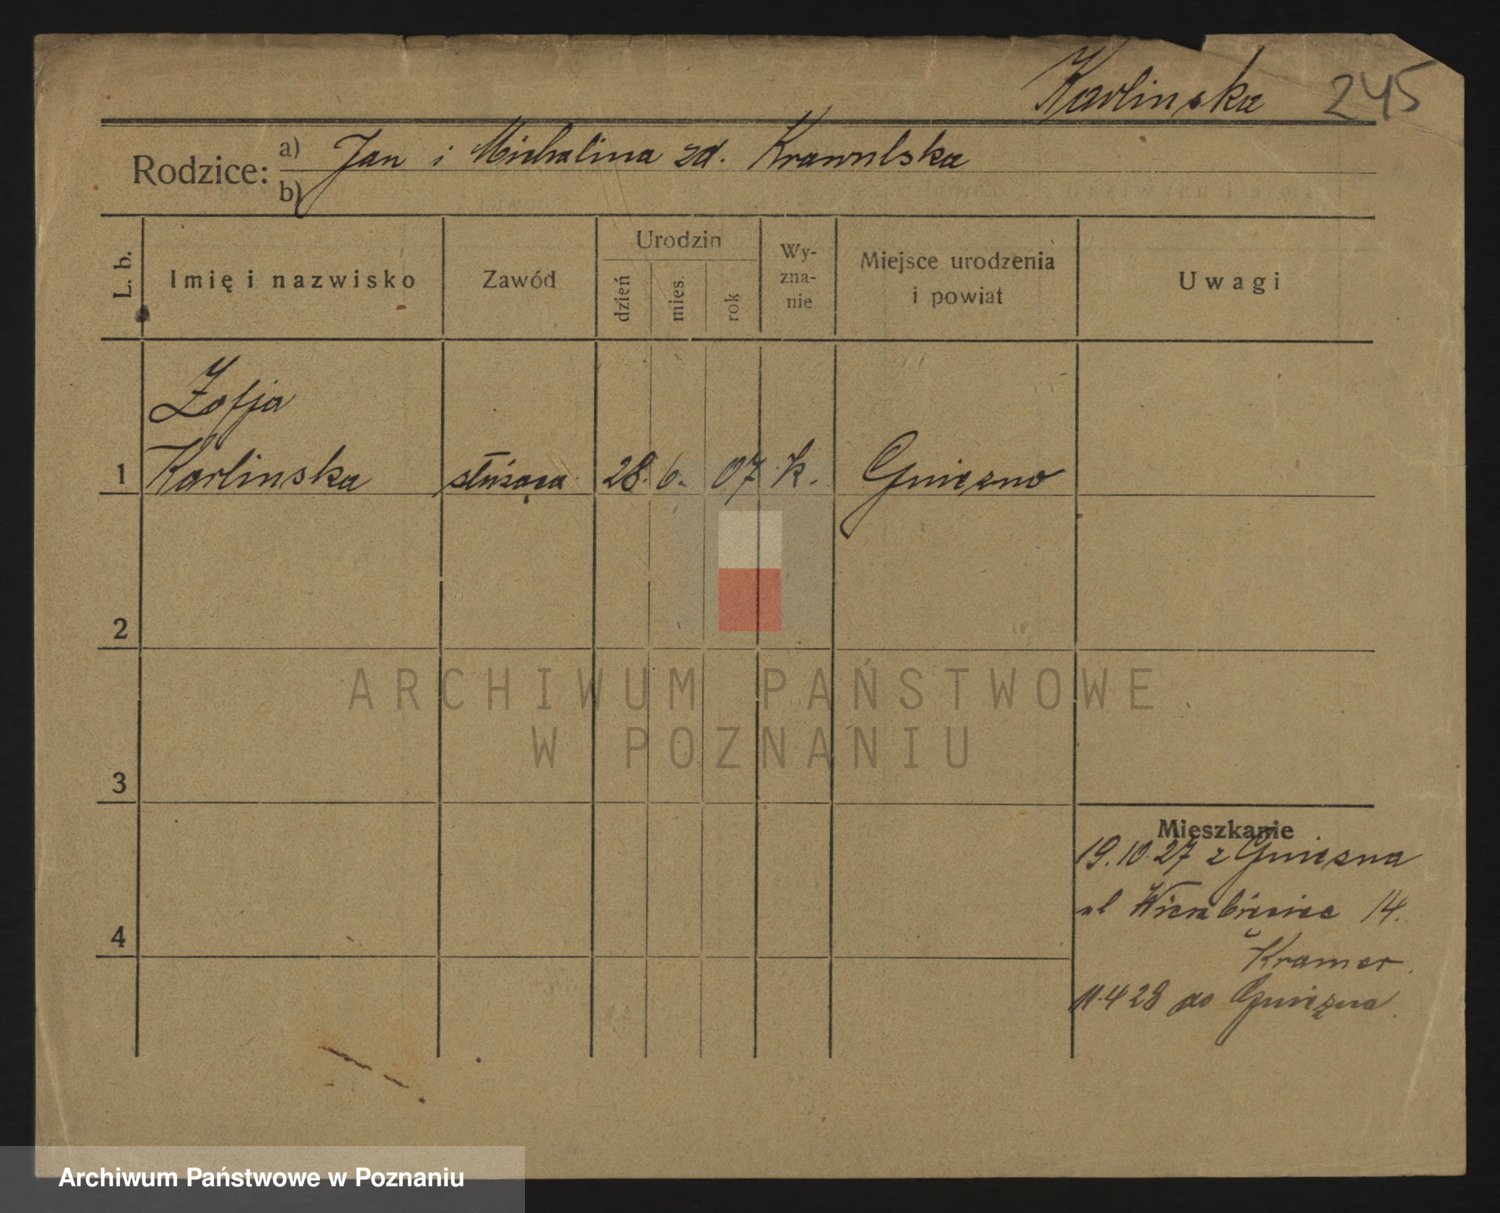 Karlinska 245
Rodzice: a) Jan i Michalina zd. Krawulska
b)
L. b.
Imię i nazwisko
Zawód
Urodzin
dzień
mies.
rok
Wy-
zna-
nie
Miejsce urodzenia
i powiat
Uwagi
Zofja
1 Karlinska służąca 28. 6. 07 k. Gniezno
2
ARCHIWUM PAŃSTWOWE
W POZNANIU
3
Mieszkanie
19.10.27 z Gniezna
ul Wierzbięcice 14.
4
Kramer.
11.4 28 do Gniezna
Archiwum Państwowe w Poznaniu